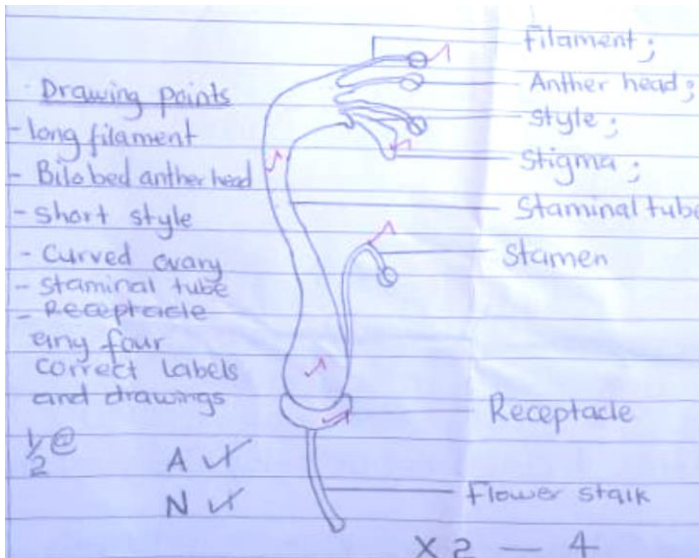 Drawing points
- long filament
- Bilobed anther head
- short style
- Curved ovary
- staminal tube
- Receptacle
any four
correct labels
and drawings
1/2 @
A
N
Filament;
Anther head;
Style;
Stigma;
Staminal tube
Stamen
Receptacle
Flower stalk
X 2 — 4